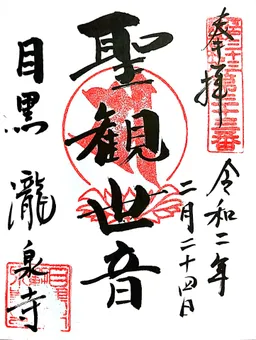 奉拝
第三十三番
令和二年
二月二十四日
聖観世音
目黒
瀧泉寺